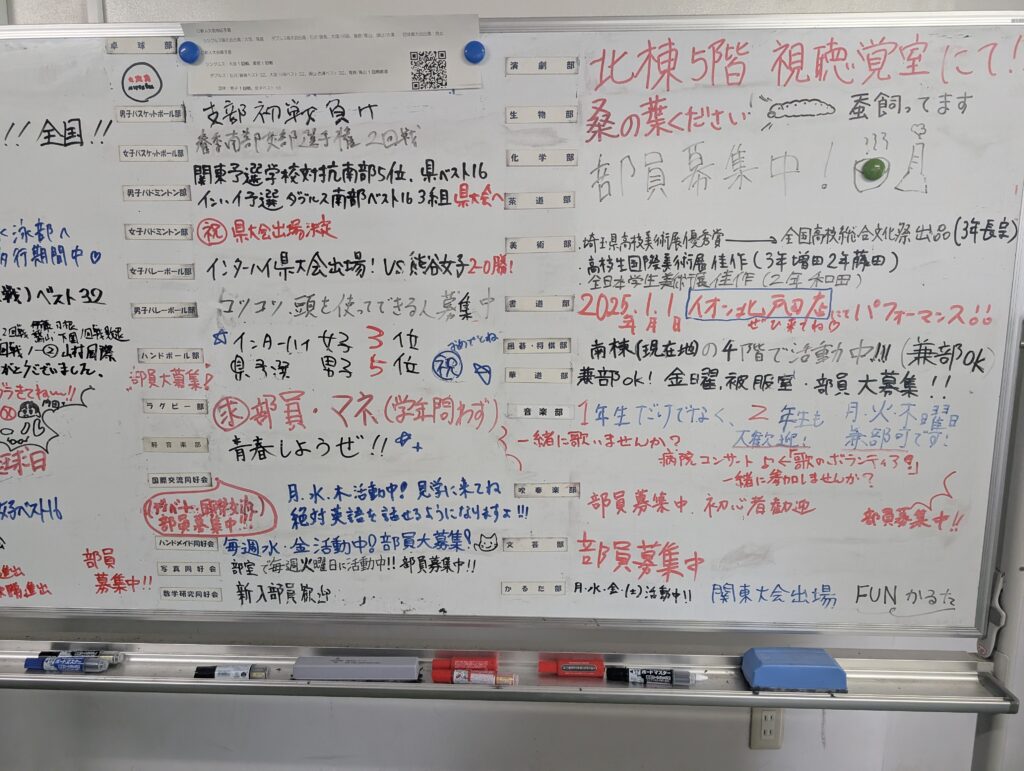 !! 全国!!
泳部へ
行期間中♡
戦)ベスト32
山村国際
ました。
部員
募集中!!
卓球部
男子バスケットボール部
支部初戦負け
女子バスケットボール部
2回戦
男子バドミントン部
関東予選学校対抗南部5位、県ベスト16
インハイ予選 ダブルス南部ベスト16 3組 県大会へ
女子バドミントン部
㊗ 県大会出場決定
女子バレーボール部
インターハイ県大会出場! VS. 熊谷女子 2-0勝!
男子バレーボール部
コツコツ、頭を使ってできる人募集中
ハンドボール部
部員大募集!
☆インターハイ 女子 3 位
県予選 男子 5 位 ㊗ おめでとね
ラグビー部
求 部員・マネ(学年問わず)
軽音楽部
青春しようぜ!!
国際交流同好会
部員募集中!!!
月.水.木活動中! 見学に来てね
絶対英語を話せるようになりますよ!!!
ハンドメイド同好会
毎週水・金活動中! 部員大募集!
写真同好会
部室で毎週火曜日に活動中!! 部員募集中!!
数学研究同好会
新入部員歓迎
演劇部
北棟5階 視聴覚室にて!
生物部
桑の葉ください 蚕飼ってます
化学部
部員募集中!
茶道部
美術部
埼玉県高校美術展優秀賞→全国高校総合文化祭出品(3年長宗)
高校生国際美術展佳作(3年増田2年蓜田)
全日本学生美術展佳作(2年和田)
書道部
2025.1.1 イオン北戸田店にてパフォーマンス!!
年月日 ぜひ来てね♡
囲碁・将棋部
南棟(現在地)の4階で活動中!!! (兼部OK)
華道部
兼部OK! 金曜、被服室・部員大募集!!
音楽部
1年生だけでなく、2年生も 月・火・木曜日
大歓迎! 兼部可です!
一緒に歌いませんか?
病院コンサート
一緒に参加しませんか?
吹奏楽部
部員募集中 初心者歓迎
部員募集中!!
文芸部
部員募集中
かるた部
月・水・金・(土)活動中!! 関東大会出場 FUNかるた